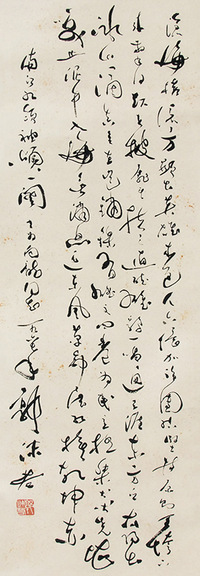 沧海横流方显出英雄本色人六億加强團結堅持原則天垮下
来擎得起世披靡矣扶之直聽雄鷄一唱遍寰中東方白太陽出
冰山滴真金在豈銷鑠有雄文四卷為民立極桀犬吠堯
堪笑止泥牛入海無消息迎東風革命展紅旗乾坤赤
满江红領袖頌一闋
同志一九六三年郭沫若